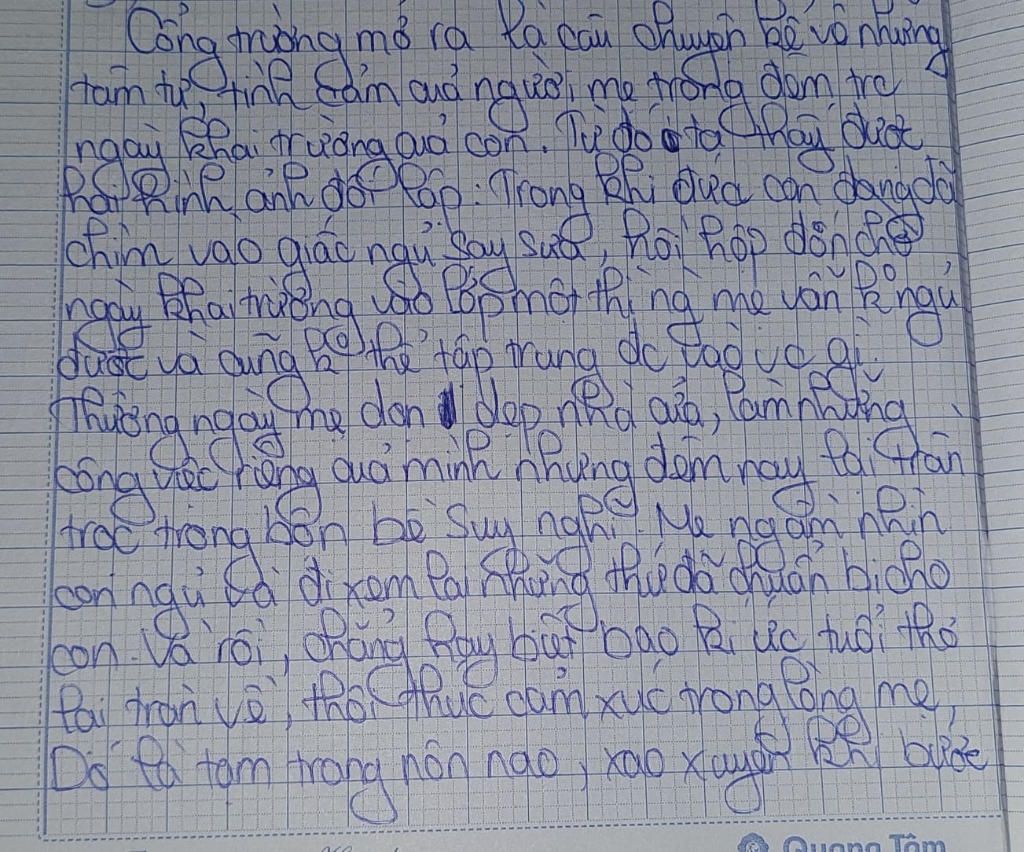 Cổng trường mở ra là câu chuyện kể về những
tâm tư, tình cảm của người mẹ trong đêm trc
ngày khai trường của con. Từ đó ta thấy được
hai hình ảnh đối lập: Trong khi đứa con đang dần
chìm vào giấc ngủ say sưa, hồi hộp đón chờ
ngày khai trường vào lớp một thì ng mẹ vẫn ko ngủ
được và cũng ko thể tập trung dc vào vc gì.
Thường ngày mẹ dọn dẹp nhà cửa, làm những
công việc riêng của mình nhưng đêm nay lại trằn
trọc trong bộn bề suy nghĩ. Mẹ ngắm nhìn
con ngủ và đi xem lại những thứ đã chuẩn bị cho
con. Và rồi, chẳng hay biết bao kí ức tuổi thơ
lại tràn về, thổi thức cảm xúc trong lòng mẹ,
Đó là tâm trạng nôn nao, xao xuyến khi bước
Quang Tâm